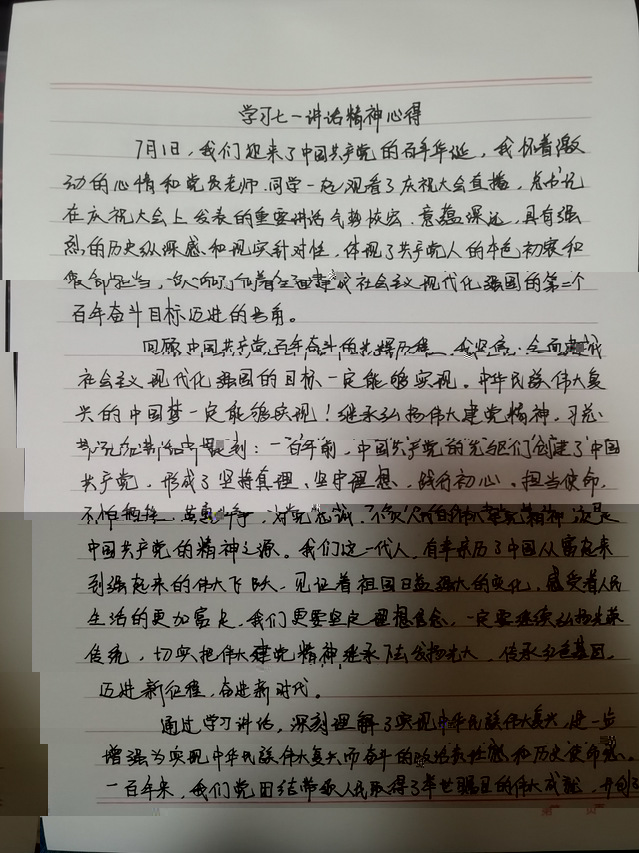 学习七一讲话精神心得
7月1日，我们迎来了中国共产党的百年华诞，我怀着激
动的心情和党员老师、同学一起观看了庆祝大会直播，总书记
在庆祝大会上发表的重要讲话气势恢宏、意蕴深远，具有强
烈的历史纵深感和现实针对性，体现了共产党人的本色初衷和
社会主义现代化强国的第二个
百年奋斗目标迈进的号角。
回顾中国共产党百年奋斗的光辉历程，我坚信：全面建成
社会主义现代化强国的目标一定能够实现。中华民族伟大复
兴的中国梦一定能够实现！继承弘扬伟大建党精神，习总
：一百年前，中国共产党的先驱们创建了中国
共产党，形成了坚持真理、坚守理想，践行初心、担当使命，
不怕牺牲、英勇斗争，对党忠诚、不负人民的伟大建党精神，这是
中国共产党的精神之源。我们这一代人，有幸亲历了中国从富起来
到强起来的伟大飞跃，见证着祖国日益强大的变化，感受着人民
生活的更加富足，我们更要坚定理想信念，一定要继续弘扬光荣
传统，切实把伟大建党精神继承下去发扬光大，传承红色基因，
迈进新征程，奋进新时代。
通过学习讲话，深刻理解了实现中华民族伟大复兴，进一步
增强为实现中华民族伟大复兴而奋斗的政治责任感和历史使命感。
一百年来，我们党团结带领人民取得了举世瞩目的伟大成就，开创了